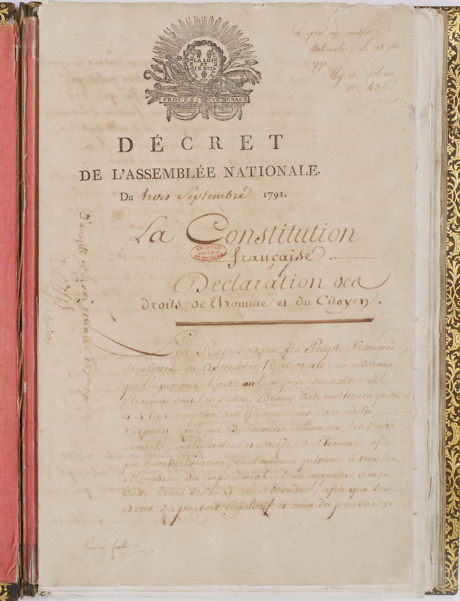 LA LOI
ET
LE ROI
PROCÈS VERBAUX
DÉCRET
DE L'ASSEMBLÉE NATIONALE.
Du trois Septembre 1791.
La Constitution
française
Déclaration des
droits de l'homme et du Citoyen.
Les Représentans du Peuple Français
constitués en Assemblée Nationale, considérant
que l'ignorance, l'oubli ou le mépris des droits de
l'homme sont les seules causes des malheurs publics
et de la corruption des Gouvernemens, ont résolu
d'exposer dans une Déclaration solemnelle, les droits
naturels, inaliénables et sacrés de l'homme, afin
que cette déclaration, constamment présente à tous les
Membres du Corps social, leur rappelle sans
cesse leurs droits et leurs devoirs; afin que les
actes du pouvoir législatif et ceux du pouvoir